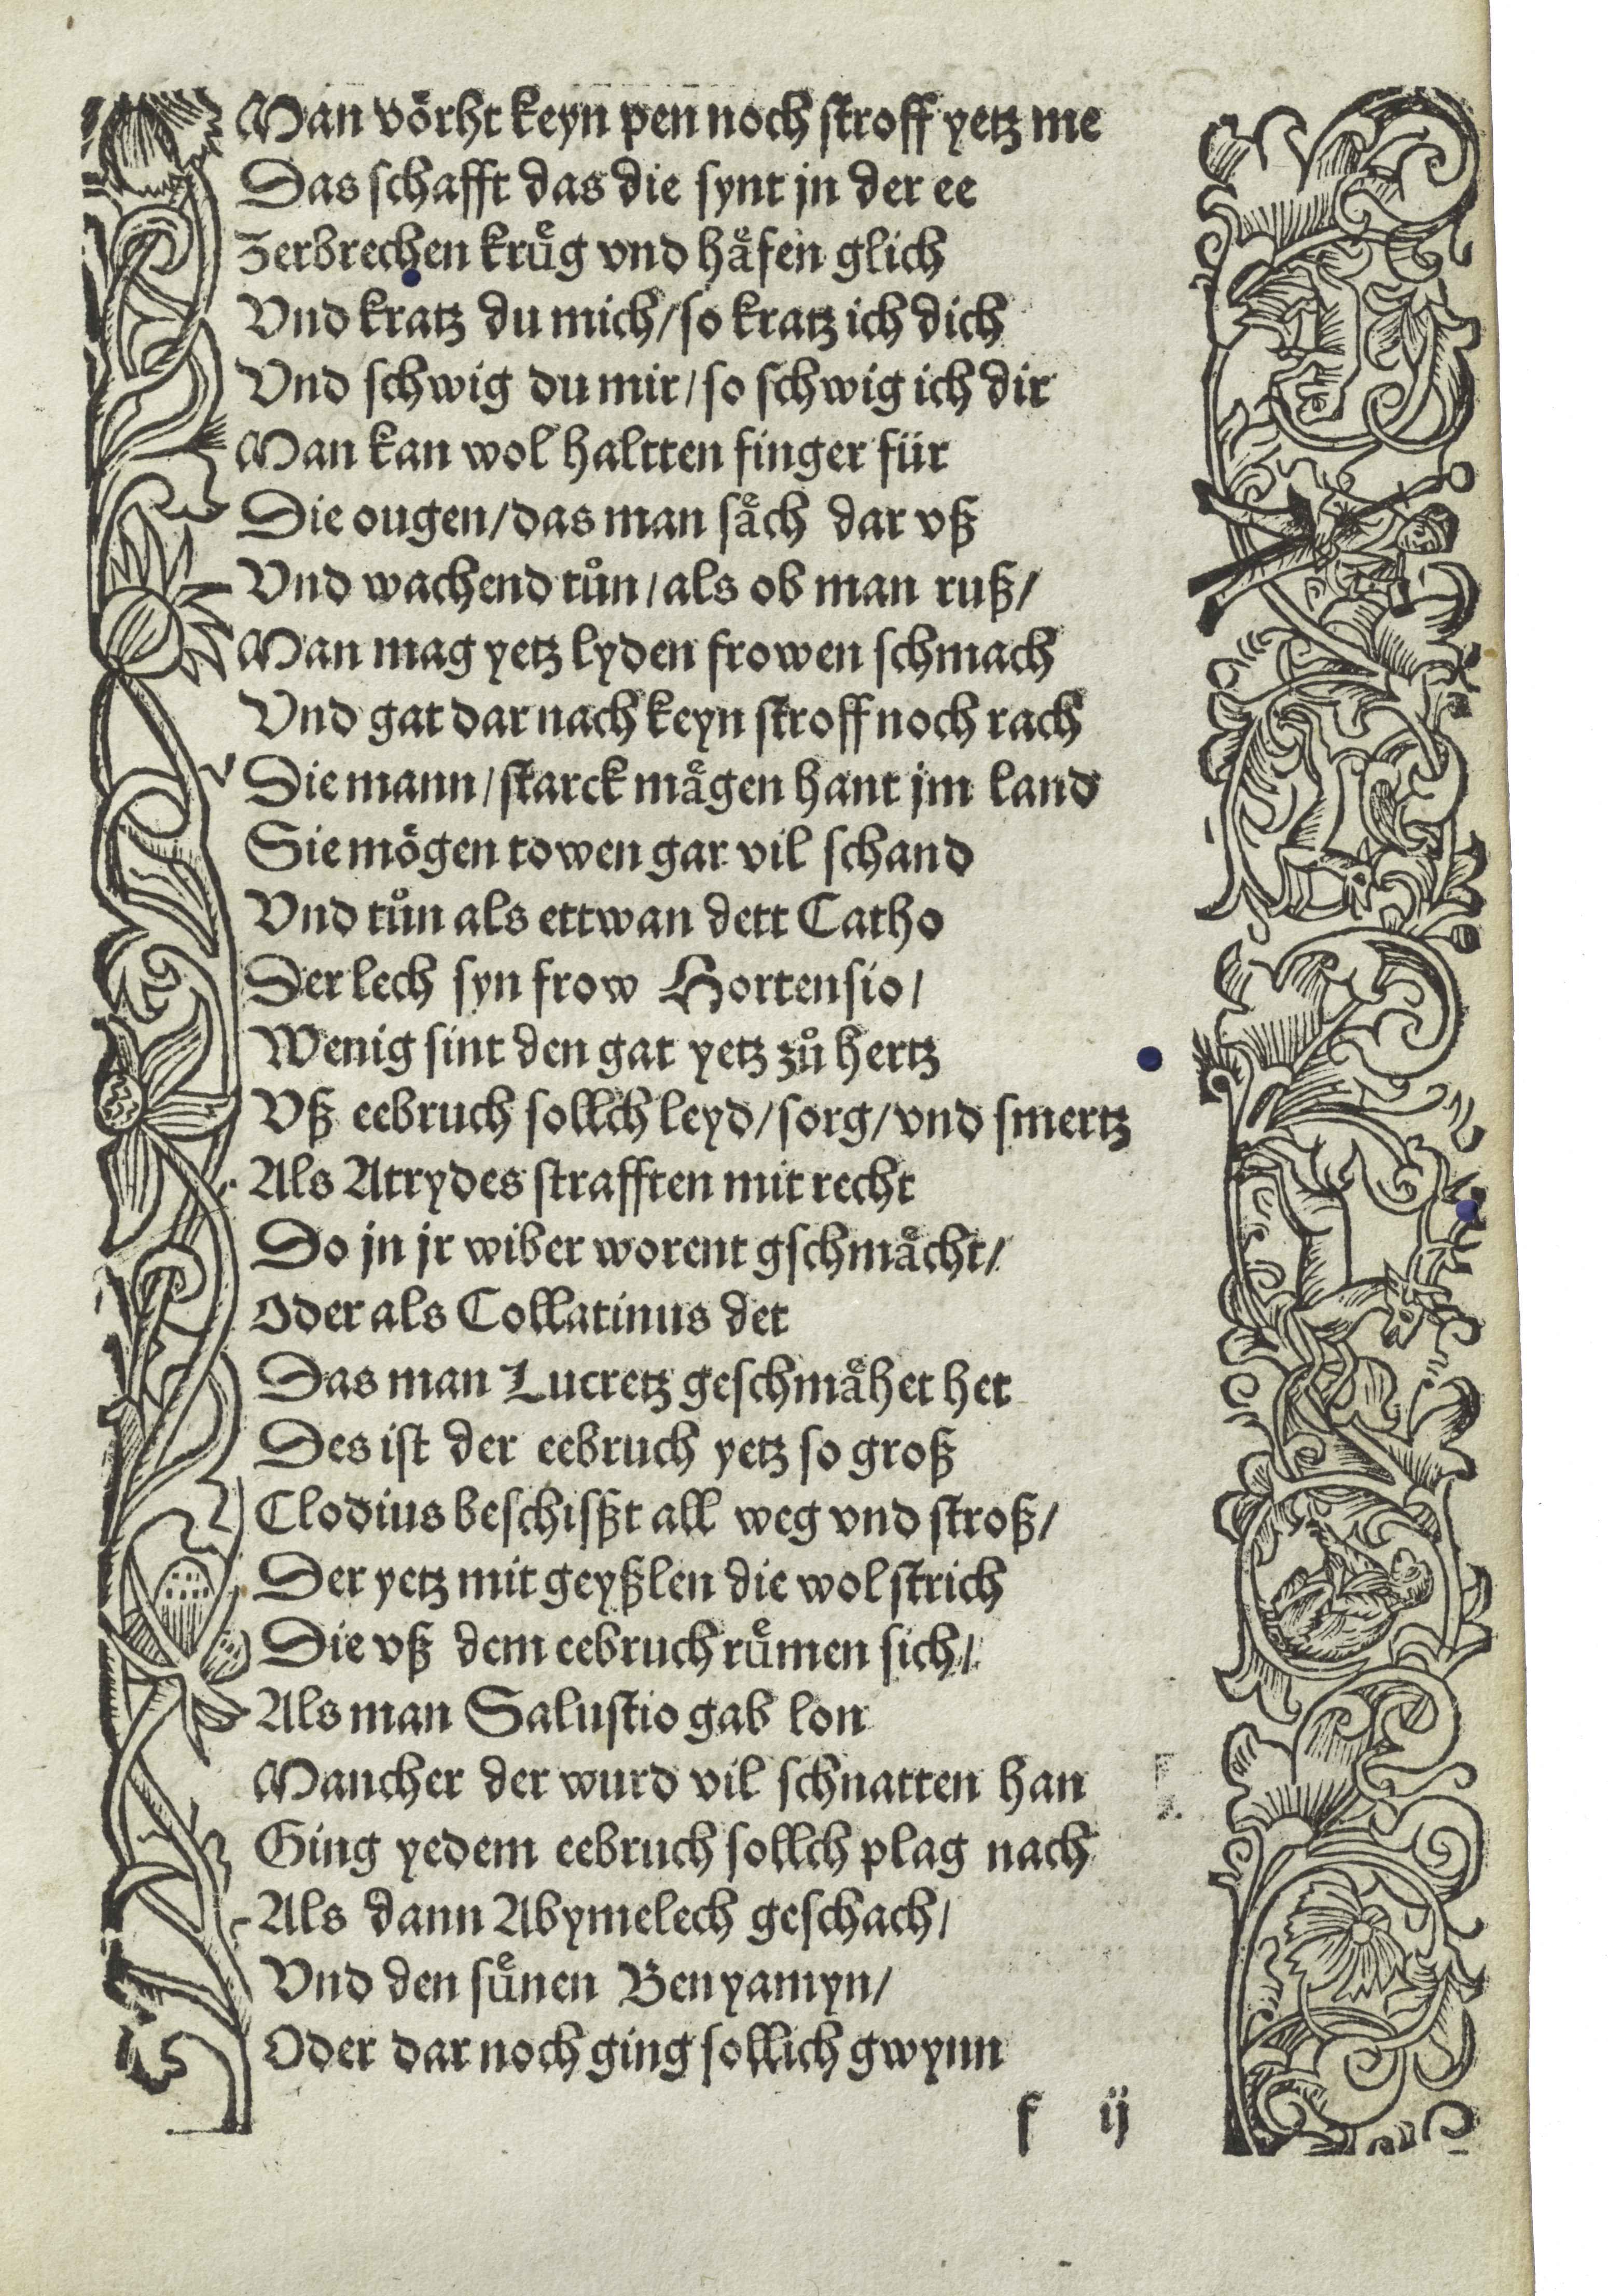 Man voͤrht keyn pen noch stroff yetz me
Das schafft das die synt jn der ee
Zerbrechen kruͤg vnd haͤfen glich
Vnd kratz du mich / so kratz ich dich
Vnd schwig du mir / so schwig ich dir
Man kan wol haltten finger für
Die ougen / das man saͤch dar vß
Vnd wachend tuͦn / als ob man ruß /
Man mag yetz lyden frowen schmach
Vnd gat dar nach keyn stroff noch rach
Die mann / starck maͤgen hant jm land
Sie moͤgen towen gar vil schand
Vnd tuͦn als ettwan dett Catho
Der lech syn frow Hortensio /
Wenig sint den gat yetz zuͦ hertz
Vß eebruch sollch leyd / sorg / vnd smertz
Als Atrydes strafften mit recht
Do jn jr wiber worent gschmaͤcht /
Oder als Collatinus det
Das man Lucretz geschmaͤhet het
Des ist der eebruch yetz so groß
Clodius beschisßt all weg vnd stroß /
Der yetz mit geyßlen die wol strich
Die vß dem eebruch ruͤmen sich /
Als man Salustio gab lon
Mancher der wurd vil schnatten han
Ging yedem eebruch sollch plag nach
Als dann Abymelech geschach /
Vnd den suͤnen Benyamyn /
Oder dar noch ging sollich gwynn
f ij